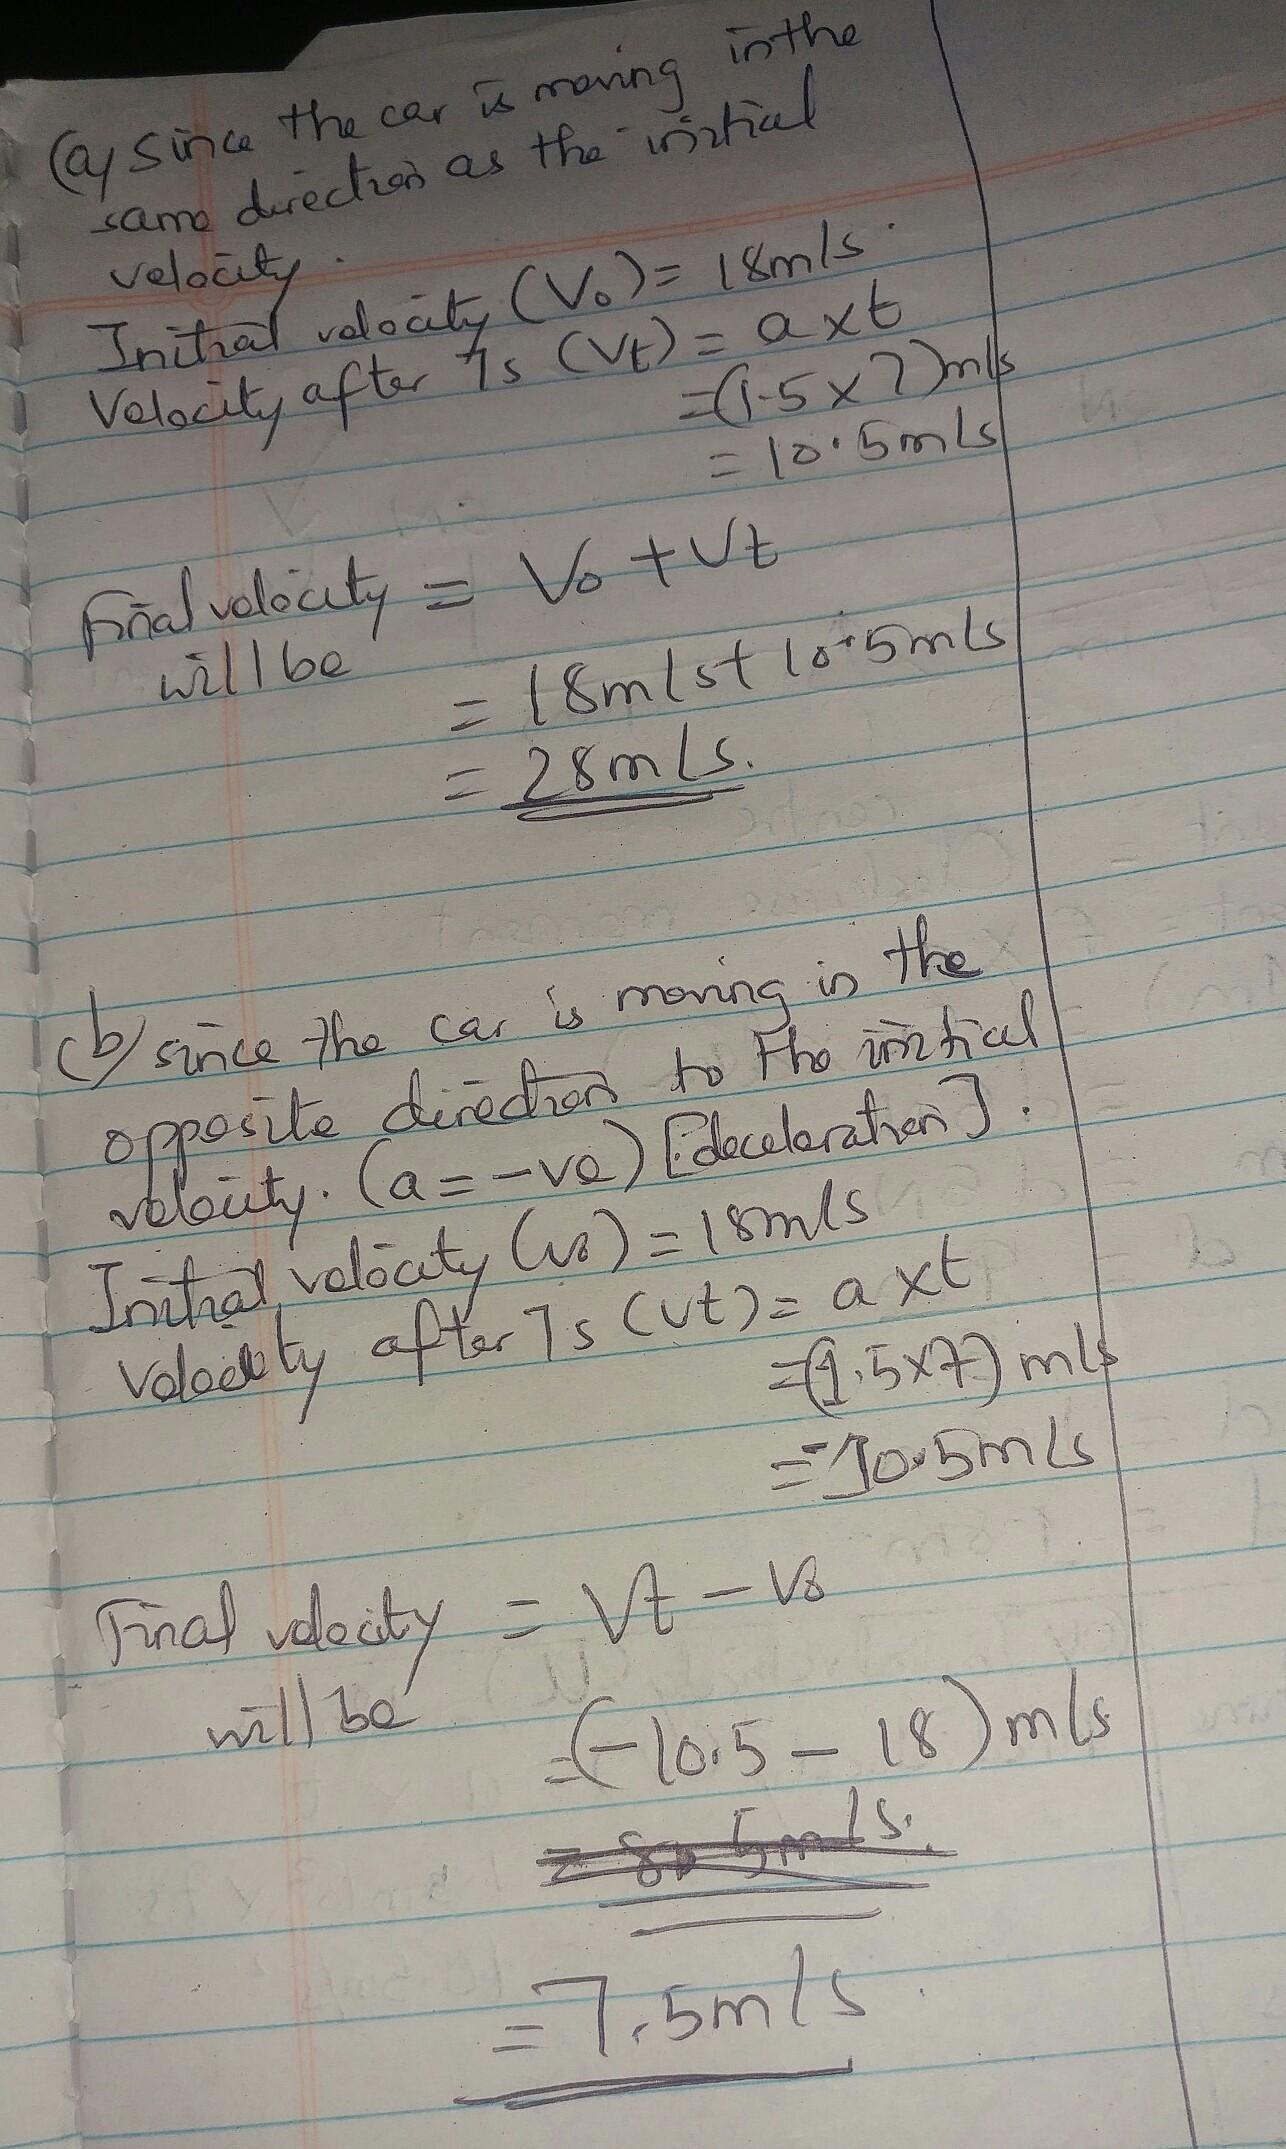 (a) Since the car is moving in the
same direction as the initial
velocity.
Initial velocity (Vo) = 18m/s.
Velocity after 7s (Vt) = a x t
= (1.5 x 7) m/s
= 10.5m/s
Final velocity = Vo + Vt
will be
= 18m/s + 10.5m/s
= 28m/s.
(b) since the car is moving in the
opposite direction to the initial
velocity. (a = -ve) [deceleration].
Initial velocity (vo) = 18m/s
Velocity after 7s (vt) = a x t
= (1.5x7) m/s
= -10.5m/s
Final velocity = Vt - Vo
will be
= (-10.5 - 18) m/s
= 7.5m/s